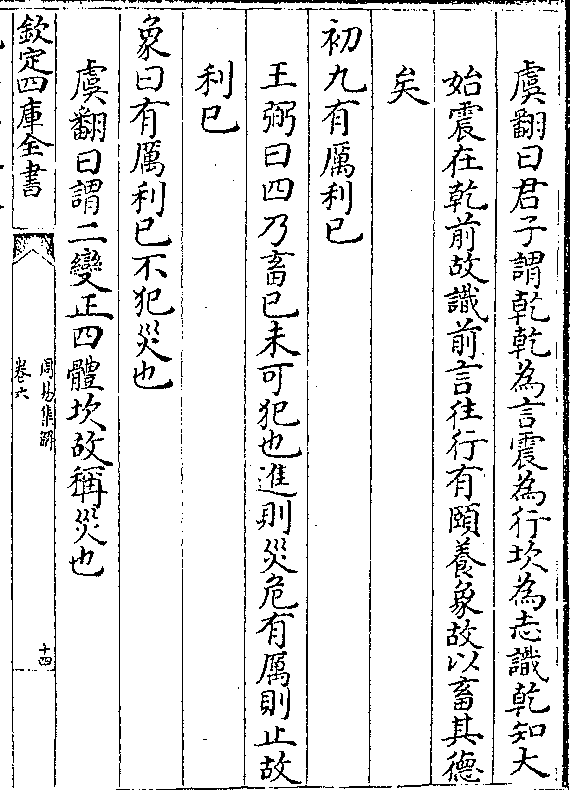 虞翻曰君子謂乾乾為言震為行坎為志識乾知大
始震在乾前故識前言往行有頤養象故以畜其德
矣
初九有厲利已
王弼曰四乃畜已未可犯也進則災危有厲則止故
利已
象曰有厲利已不犯災也
虞翻曰謂二變正四體坎故稱災也
欽定四庫全書
周易集解
卷六
十四